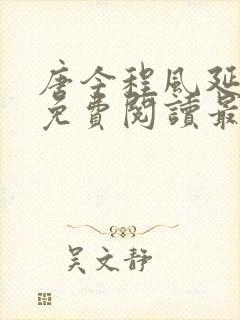 唐全程風延
免費閱讀最
吴文静